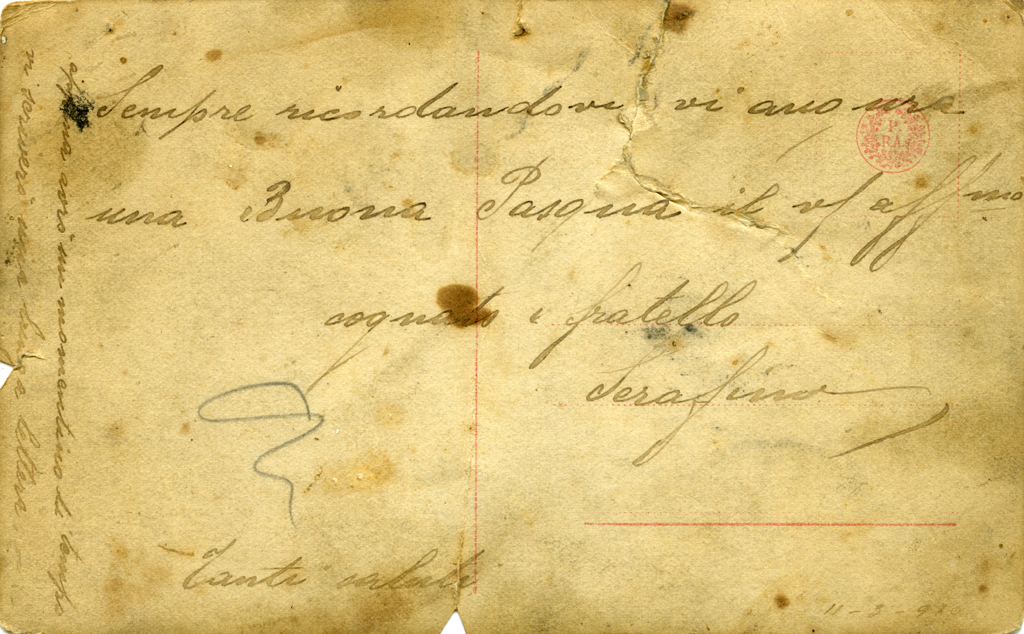 Sempre ricordandovi, vi auguro
una Buona Pasqua il vs/ aff/mo
cognato e fratello
Serafino
Tanti saluti
appena avrò un momentino di tempo
vi scriverò una lunga lettera
P.
RA
11-3-9